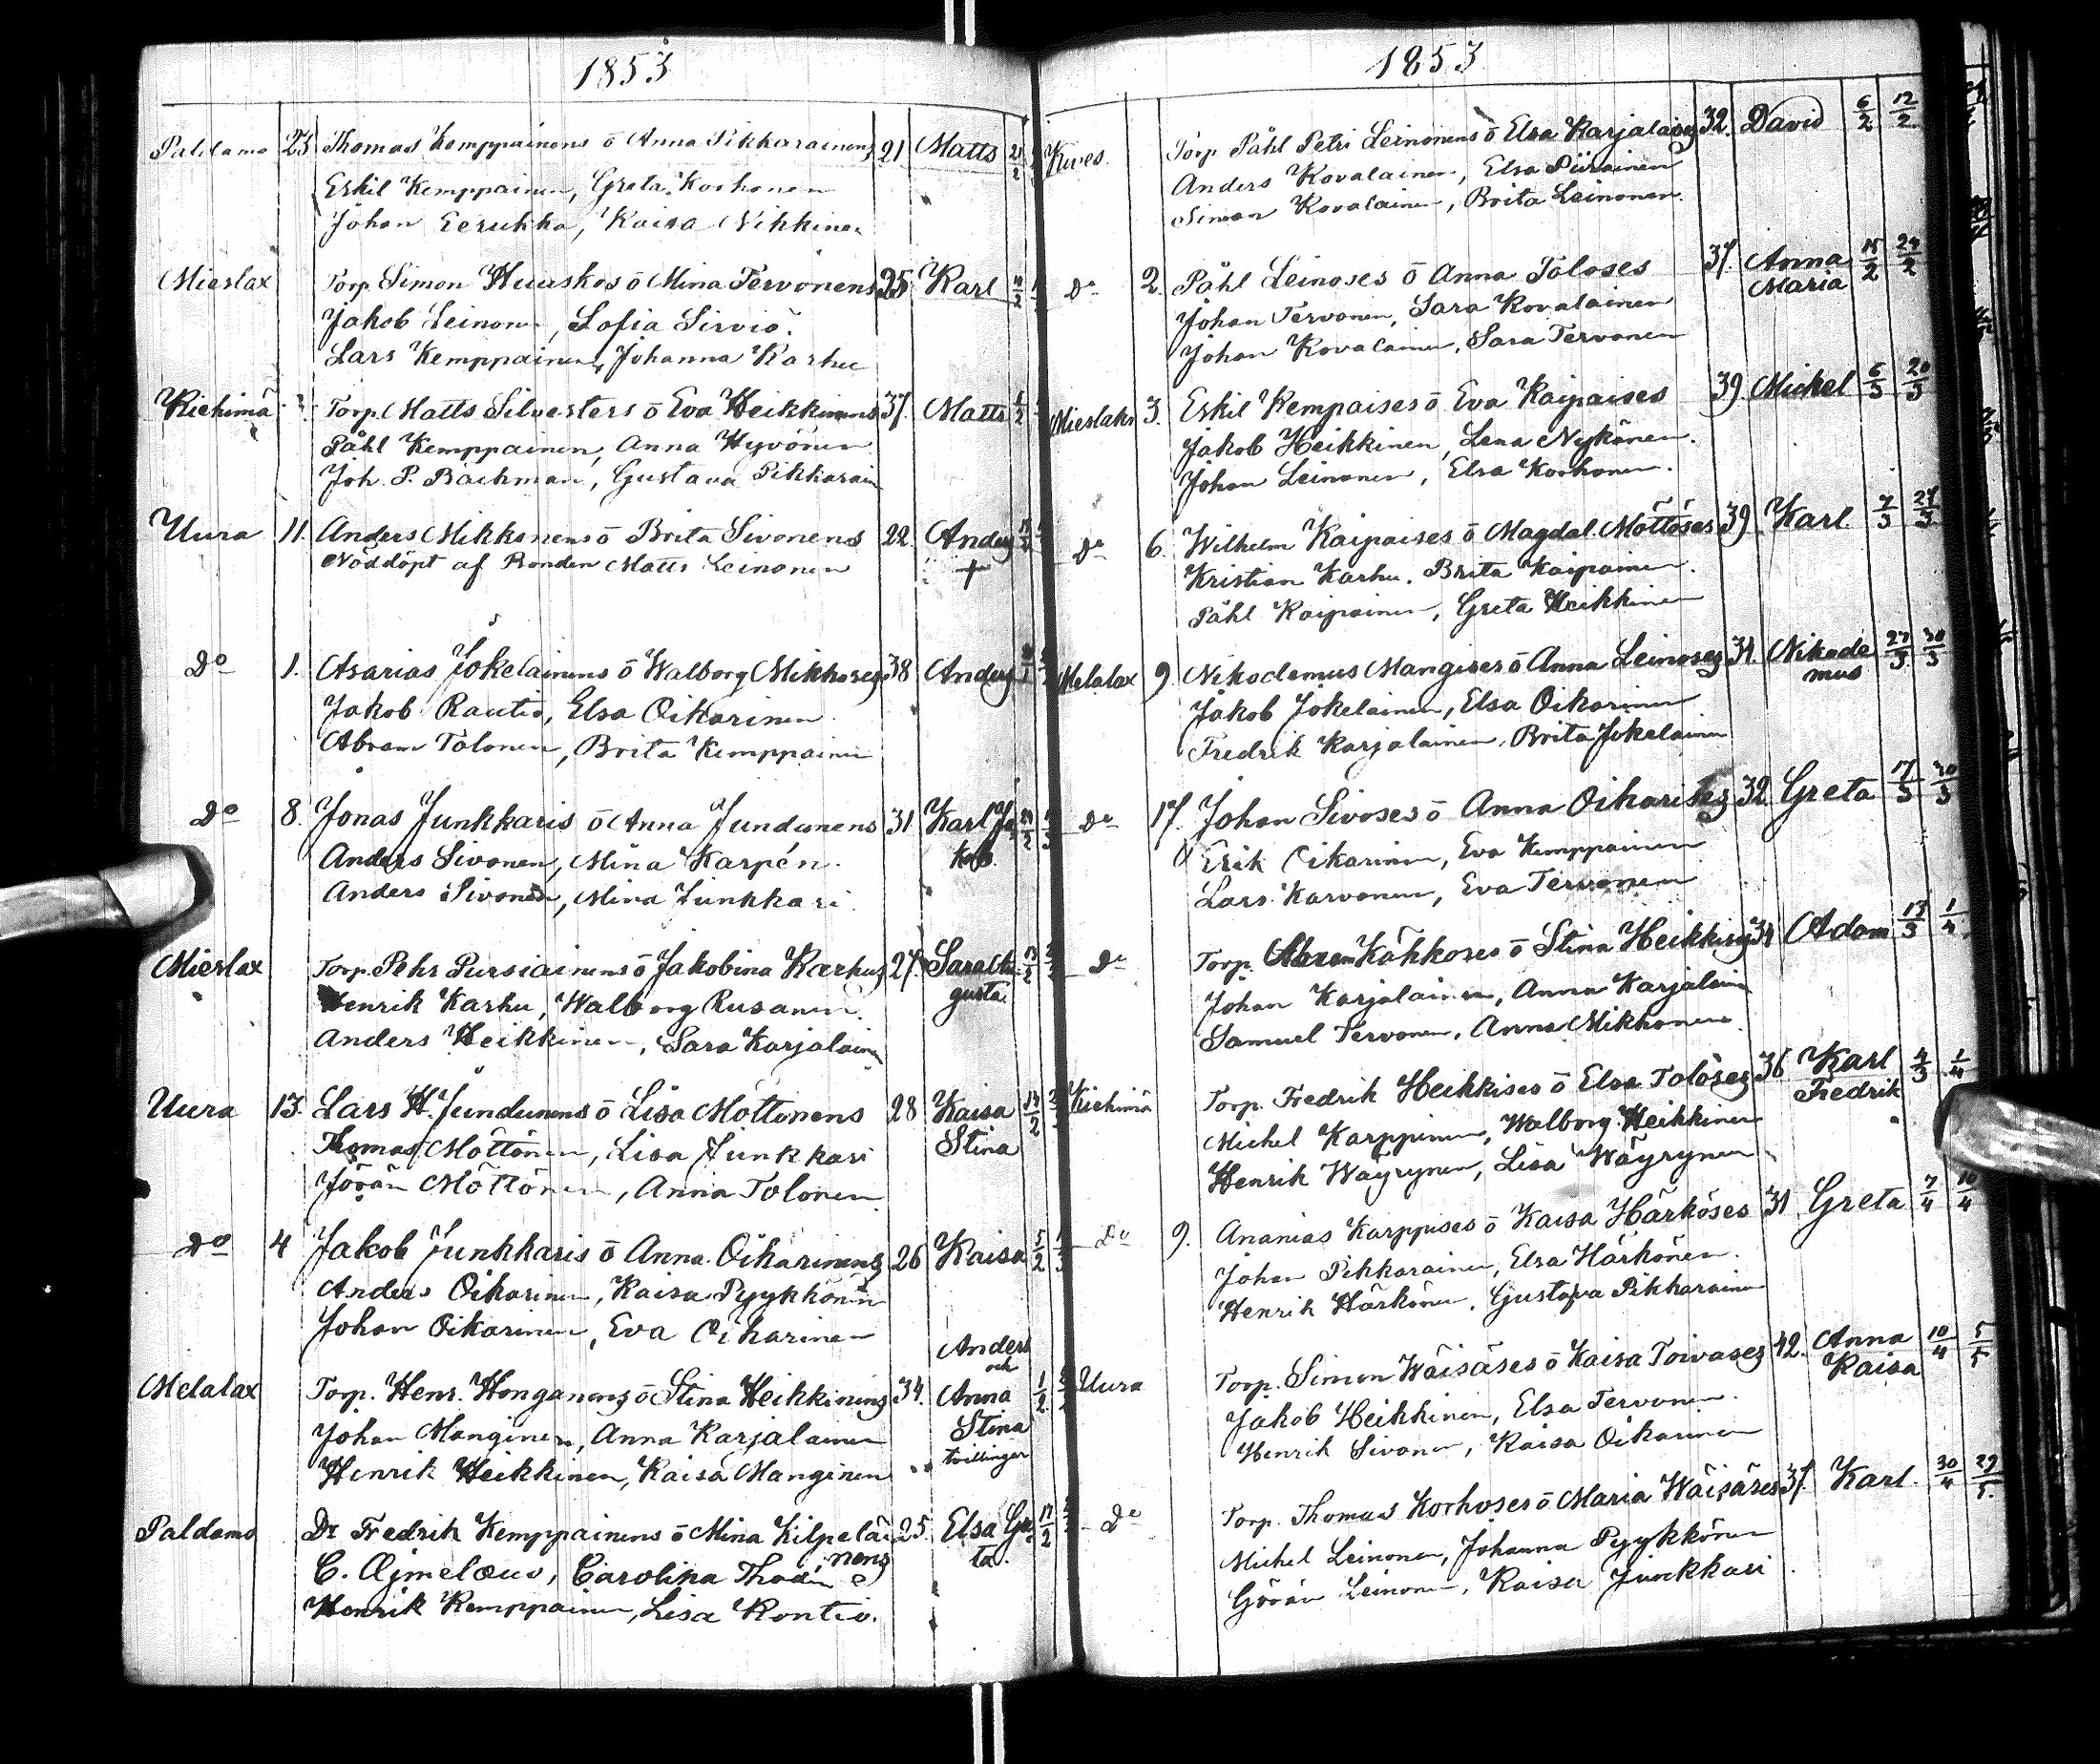 1853
Paldamo 23 Thomas Kemppainens ö Anna Pikkarainens 21 Matts
Eskil Kemppainen, Greta Korhonen
Johan Eerukka, Kaisa Nikkinen
Mieslax Torp. Simon Huuskos ö Mina Tervonens 25 Karl
Jakob Leinonen, Sofia Sirviö.
Lars Kemppainen, Johanna Karhu
Kiehimä Torp. Matts Silvesters ö Eva Heikkinens 37. Matts
Påhl Kemppainen, Anna Hyvönen
Joh. P. Bäckman, Gustava Pikkarain
Uura 11. Anders Mikkonens ö Brita Sivonens 22. Anders
Nöddöpt af Bonden Matts Leinonen +
Do 1. Asarias Jokelainens ö Walborg Mikkoses 38 Anders
Jakob Rautio, Elsa Oikarinen
Abram Tolonen, Brita Kemppainen
Do 8. Jonas Junkkaris ö Anna Jundunens 31. Karl Ja
Anders Sivonen, Mina Karpén. kob.
Anders Sivonen, Mina Junkkari.
Mieslax Torp. Pehr Pursiainens ö Jakobina Karhus 27. Sara Au 13/2
Henrik Karhu, Walborg Rusanen. gusta
Anders Heikkinen, Sara Karjalainen
Uura 13. Lars H. Jundunens ö Lisa Möttönens 28 Kaisa 14/2
Thomas Möttönen, Lisa Junkkari Stina
Jöran Möttönen, Anna Tolonen
Do 4 Jakob Junkkaris ö Anna Oikarinens 26 Kaisa 5/2
Anders Oikarinen, Kaisa Pyykkönen
Johan Oikarinen, Eva Oikarinen
Anders
och
Melalax Torp. Henr. Honganens ö Stina Heikkinens 34. Anna 1/2
Johan Manginen, Anna Karjalainen Stina
Henrik Heikkinen, Kaisa Manginen tvillingar
Paldamo Dr Fredrik Kemppainens ö Mina Kilpeläi 25. Elsa Gre 17/2
nens ta.
C. Ajmelæus, Carolina Thodén
Henrik Kemppainen, Lisa Kontio.
1853
Kives. Torp. Påhl Petri Leinonens ö Elsa Karjalaises 32. David 6/2 12/2
Anders Kovalainen, Elsa Piirainen
Simon Kovalainen, Brita Leinonen.
Do 2. Påhl Leinoses ö Anna Toloses 37. Anna 15/2 24/2
Johan Tervonen, Sara Kovalainen Maria
Johan Kovalainen, Sara Tervonen
Mieslaks 3. Eskil Kempaises ö Eva Kaipaises 39. Mickel 6/3 20/3
Jakob Heikkinen, Lena Nykänen.
Johan Leinonen, Elsa Korhonen.
Do 6. Wilhelm Kaipaises ö Magdal. Möttöses 39. Karl. 7/3 27/3
Kristian Karhu. Brita Kaipainen.
Påhl Kaipainen, Greta Heikkinen
Melalax 9. Nikodemus Mangises ö Anna Leinoses 31. Nikode 27/3 30/3
Jakob Jokelainen, Elsa Oikarinen mus
Fredrik Karjalainen. Brita Jokelainen
Do 17. Johan Sivoses ö Anna Oikarises 32. Greta 17/3 30/3
Erik Oikarinen, Eva Kemppainen
Lars Karvonen, Eva Tervonen
Do Torp. Abram Kähköses ö Stina Heikkises 34 Adam 13/3 1/4
Johan Karjalainen, Anna Karjalain
Samuel Tervonen, Anna Mikkonen.
Kiehimä Torp. Fredrik Heikkises ö Elsa Toloses 36 Karl 4/3 1/4
Michel Karppinen, Walborg Heikkinen Fredrik
Henrik Wäyrynen, Lisa Wäyrynen
Do 9. Ananias Karppises ö Kaisa Härköses 31. Greta 7/4 10/4
Johan Pikkarainen, Elsa Härkönen.
Henrik Härkönen, Gustava Pikkarainen
Uura Torp. Simon Wäisäses ö Kaisa Toivases 42. Anna 10/4 5/5
Jakob Heikkinen, Elsa Tervonen. Kaisa
Henrik Sivonen, Kaisa Oikarinen
Do Torp. Thomas Korhoses ö Maria Wäisäses 37. Karl. 30/4 29/5.
Michel Leinonen, Johanna Pyykkönen
Göran Leinonen, Kaisa Junkkari